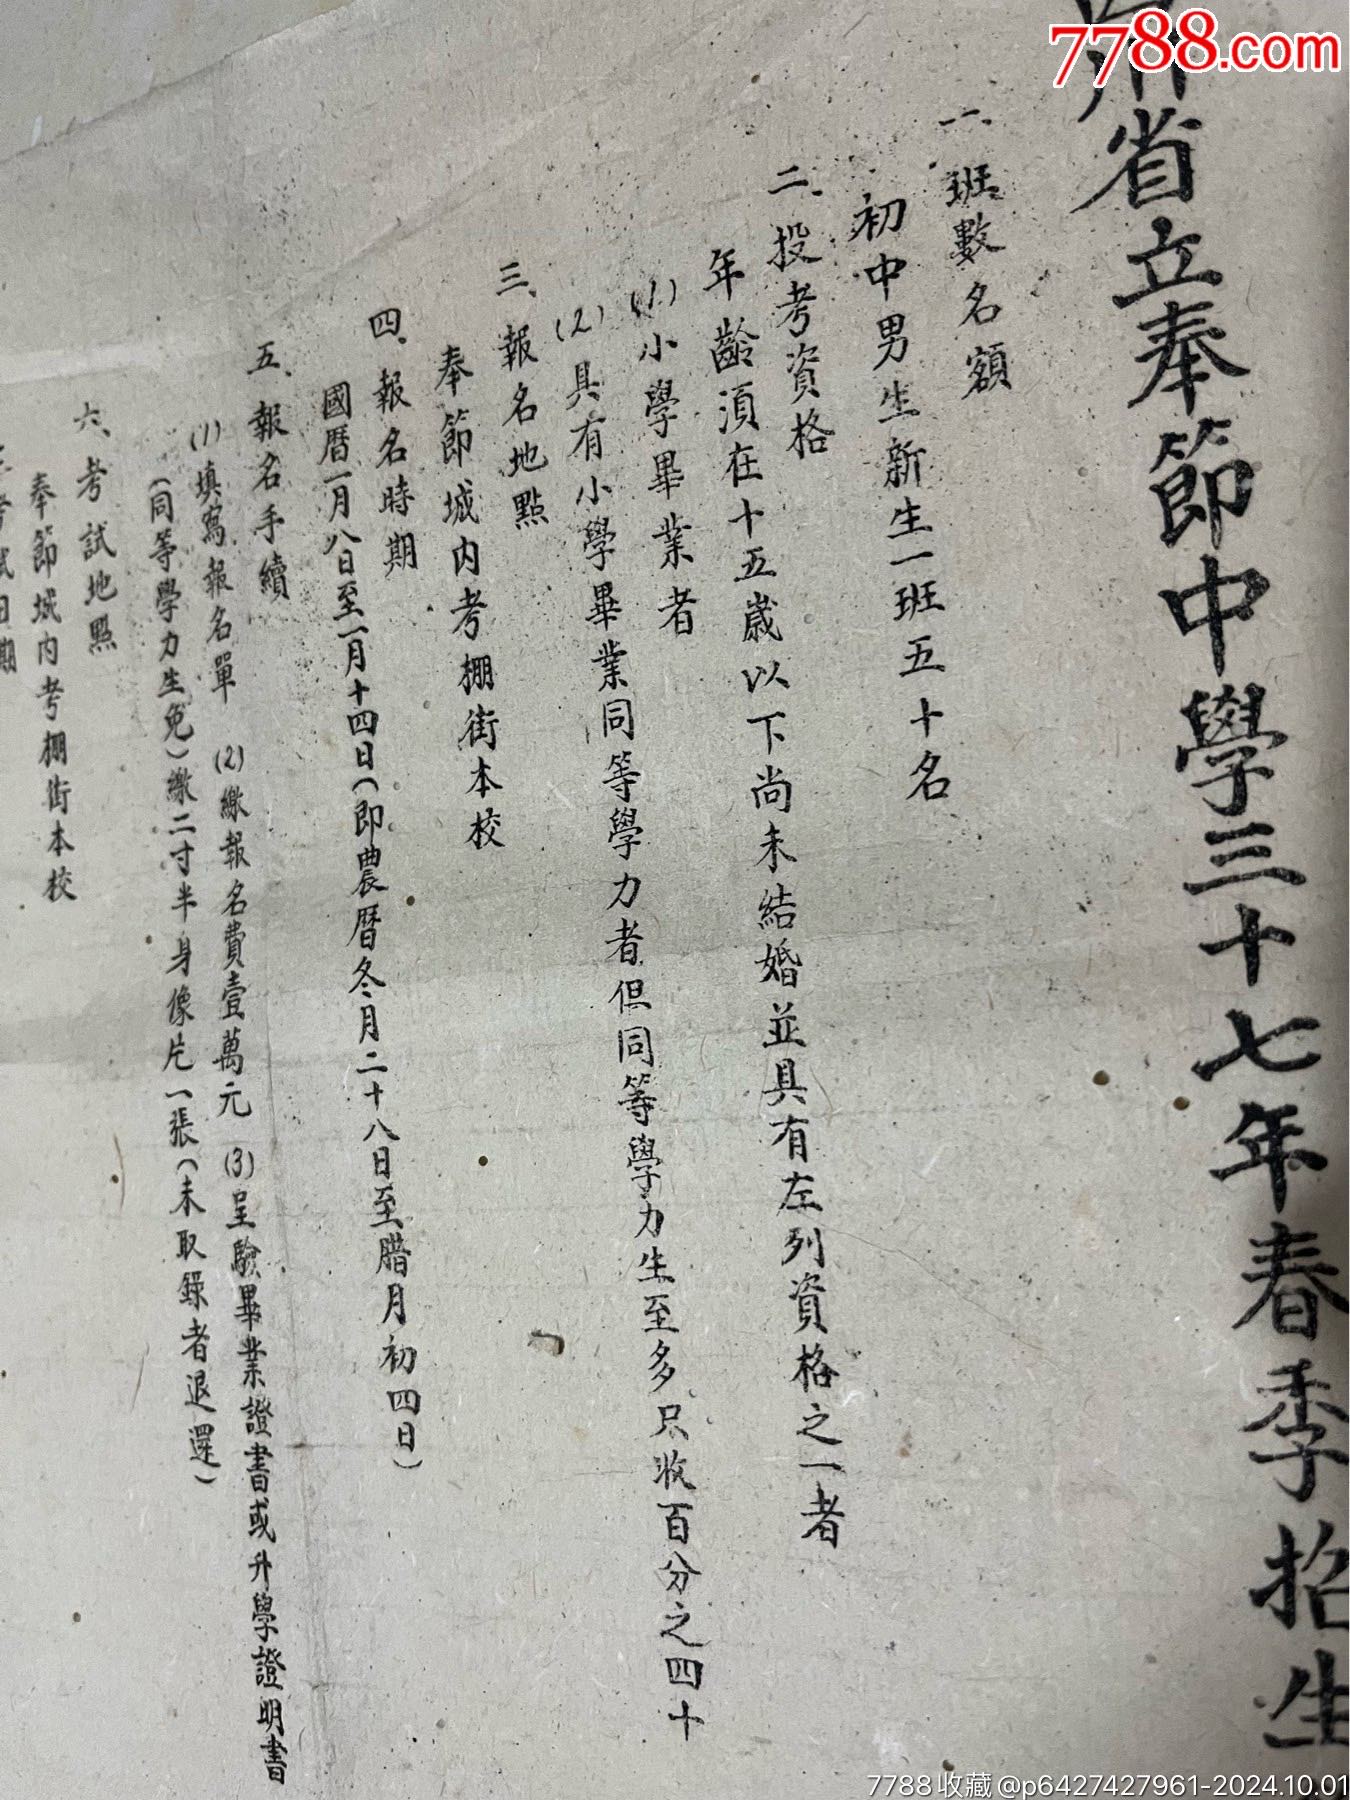 7788.com
省立奉節中學三十七年春季招生
一、班數名額
初中男生新生一班五十名
二、投考資格
年齡須在十五歲以下尚未結婚並具有左列資格之一者
(1)小學畢業者
(2)具有小學畢業同等學力者但同等學力生至多只收百分之四十
三、報名地點
奉節城內考棚街本校
四、報名時期
國曆一月八日至一月十四日(即農曆冬月二十八日至腊月初四日)
五、報名手續
(1)填寫報名單 (2)繳報名費壹萬元 (3)呈驗畢業證書或升學證明書
(同等學力生免)繳二寸半身像片一張(未取錄者退還)
六、考試地點
奉節城內考棚街本校
考試日期
7788收藏@p6427427961-2024.10.01